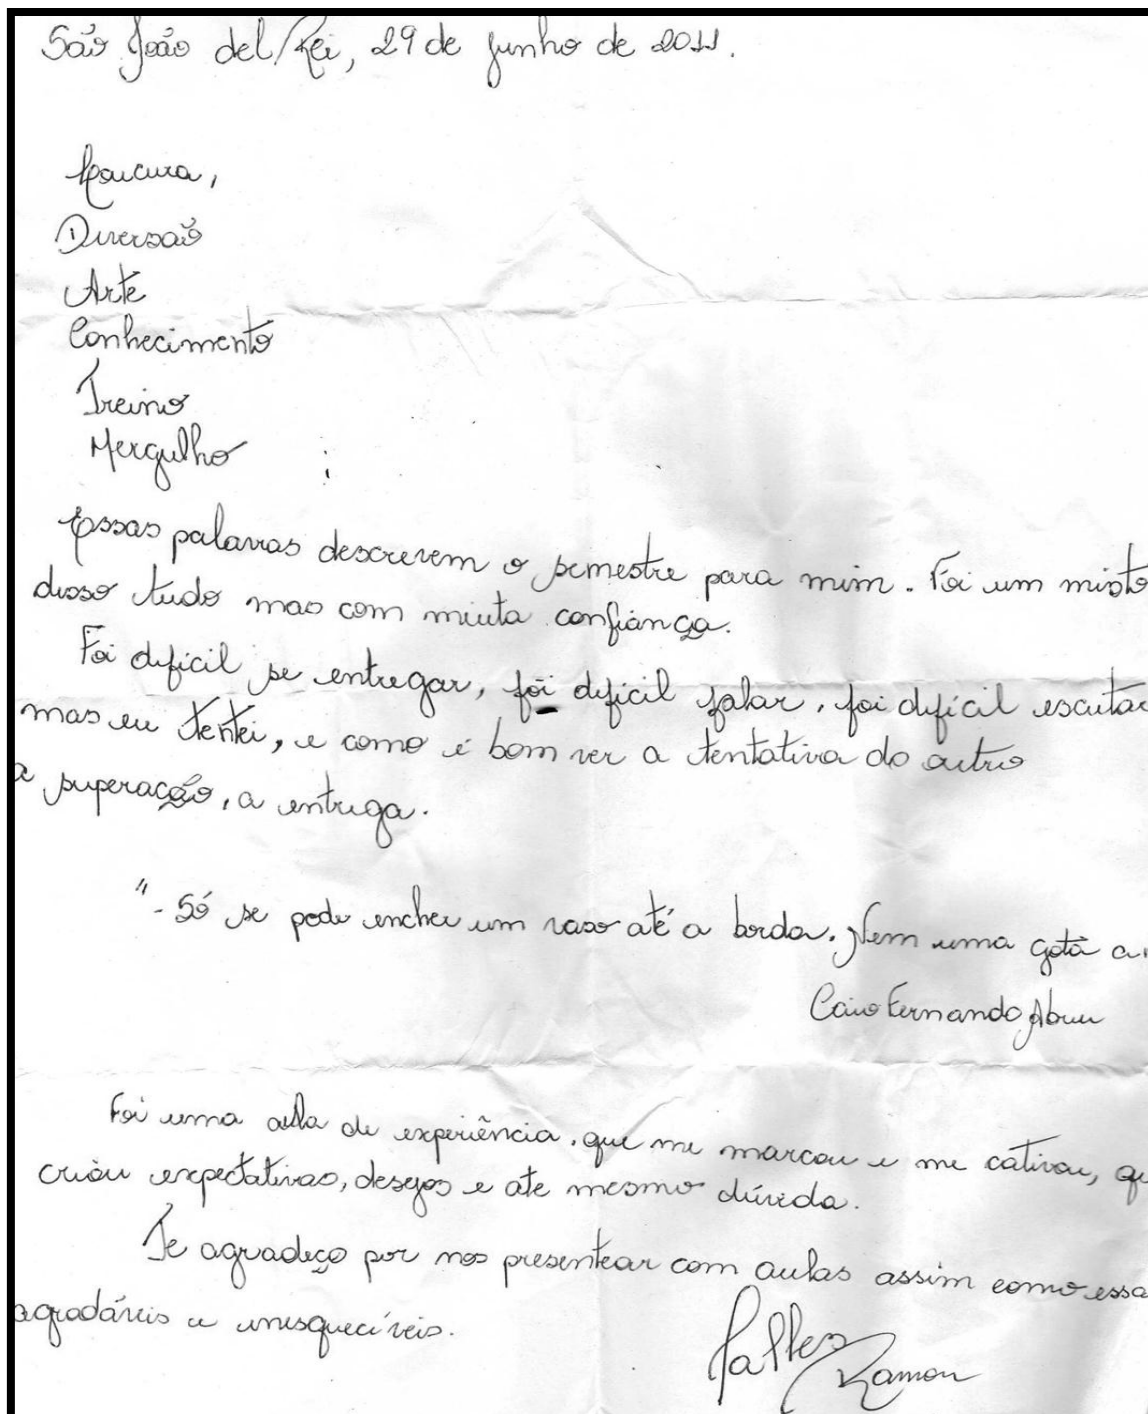 São João del Rei, 29 de junho de 2011.
Loucura,
Diversão
Arte
Conhecimento
Treino
Mergulho ;
Essas palavras descrevem o semestre para mim. Foi um misto
disso tudo mas com muita confiança.
Foi dificil se entregar, foi dificil falar, foi difícil escutar
mas eu tentei, e como é bom ver a tentativa do outro
a superação, a entrega.
"- Só se pode encher um vaso até a borda. Nem uma gota a
Caio Fernando Abreu
Foi uma aula de experiência, que me marcou e me cativou, qu
criou expectativas, desejos e ate mesmo dúvida.
Te agradeço por nos presentear com aulas assim como essa
agradáveis e inesquecíveis.
Ramon